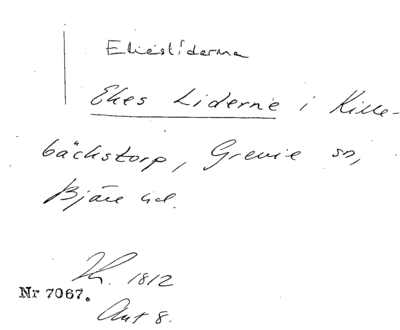 Ekestiderna
Ekes Liderne i Kille-
bäckstorp, Grevie sn,
Bjäre hd.
1812
Nr 7067.
Akt 8.